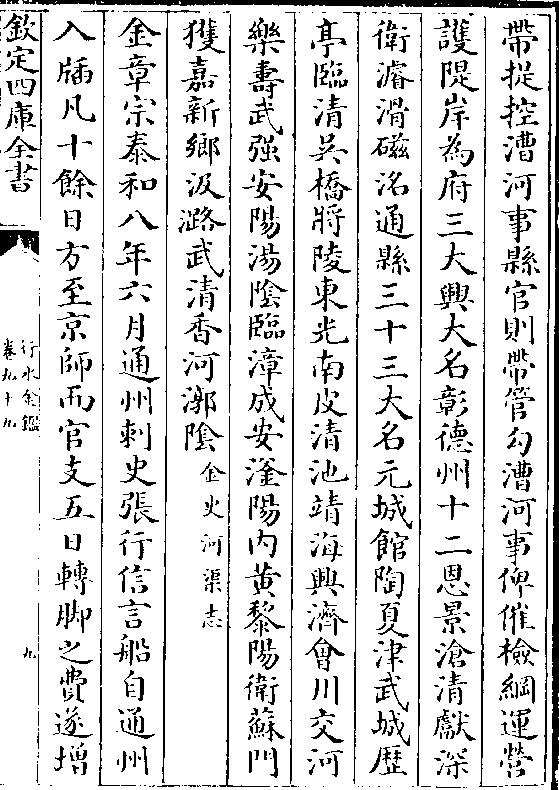 帶提控漕河事縣官則帶管勾漕河事俾催檢綱運營
護隄岸為府三大興大名彰德州十二恩景滄清獻深
衛濬滑磁洺通縣三十三大名元城館陶夏津武城歷
亭臨清吳橋將陵東光南皮清池靖海興濟會川交河
樂壽武强安陽湯陰臨漳成安滏陽内黄黎陽衛蘇門
獲嘉新鄉汲潞武清香河漷陰金史河渠志
金章宗泰和八年六月通州刺史張行信言船自通州
入牐凡十餘日方至京師而官支五日轉脚之費遂增
欽定四庫全書
行水金鑑
卷九十九
九